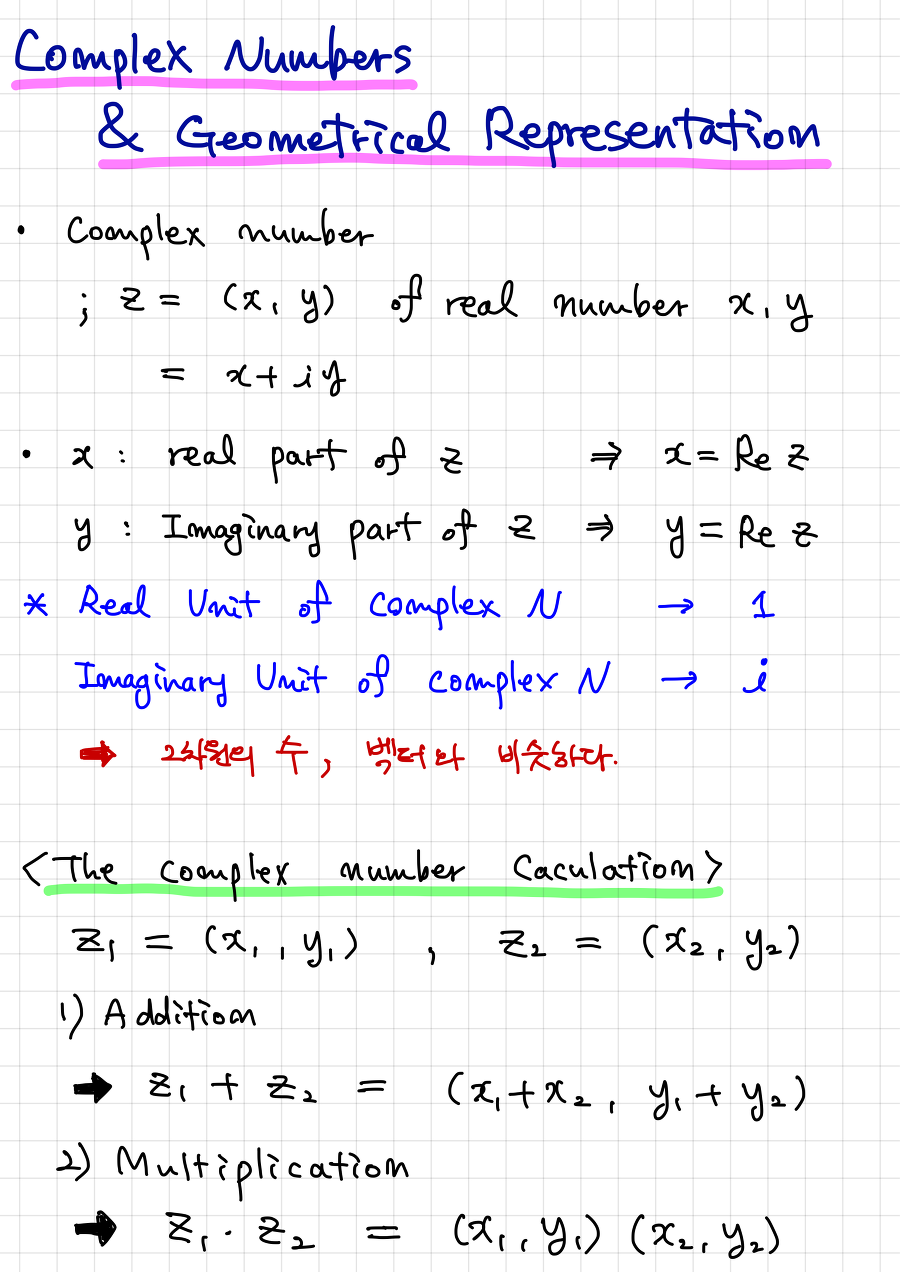 Complex Numbers
& Geometrical Representation
• Complex number
; z = (x, y) of real number x, y
= x + iy
• x : real part of z ⇒ x = Re z
y : Imaginary part of z ⇒ y = Re z
* Real Unit of complex N → 1
Imaginary Unit of complex N → i
➡ 2차원의 수, 벡터와 비슷하다.
<The complex number Caculation>
z₁ = (x₁, y₁) , z₂ = (x₂, y₂)
1) Addition
➡ z₁ + z₂ = (x₁+x₂, y₁+y₂)
2) Multiplication
➡ z₁ · z₂ = (x₁, y₁) (x₂, y₂)